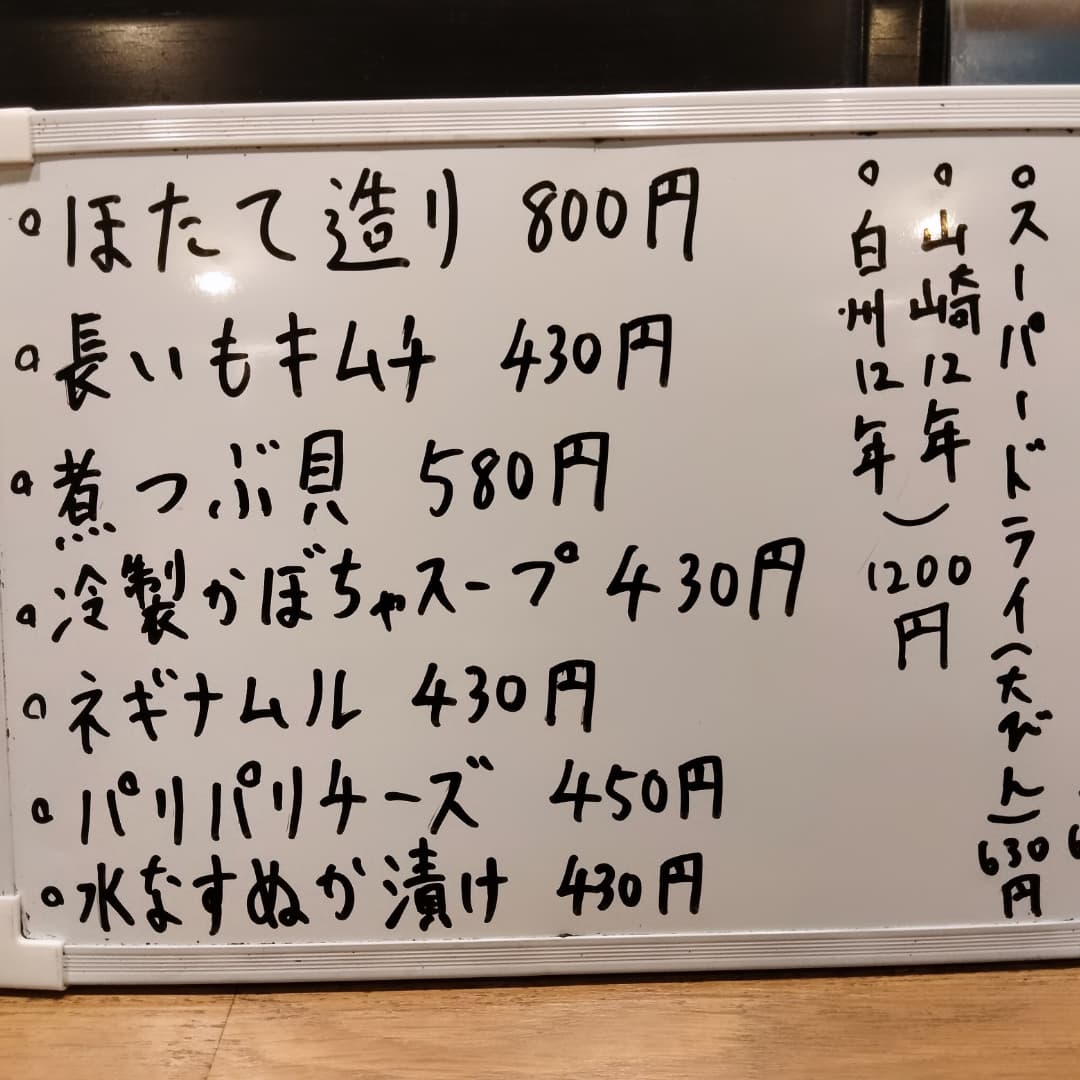 ほたて造り 800円
長いもキムチ 430円
煮つぶ貝 580円
冷製かぼちゃスープ 430円
ネギナムル 430円
パリパリチーズ 450円
水なすぬか漬け 430円
スーパードライ(大びん) 630円
山崎12年
白州12年
1200円